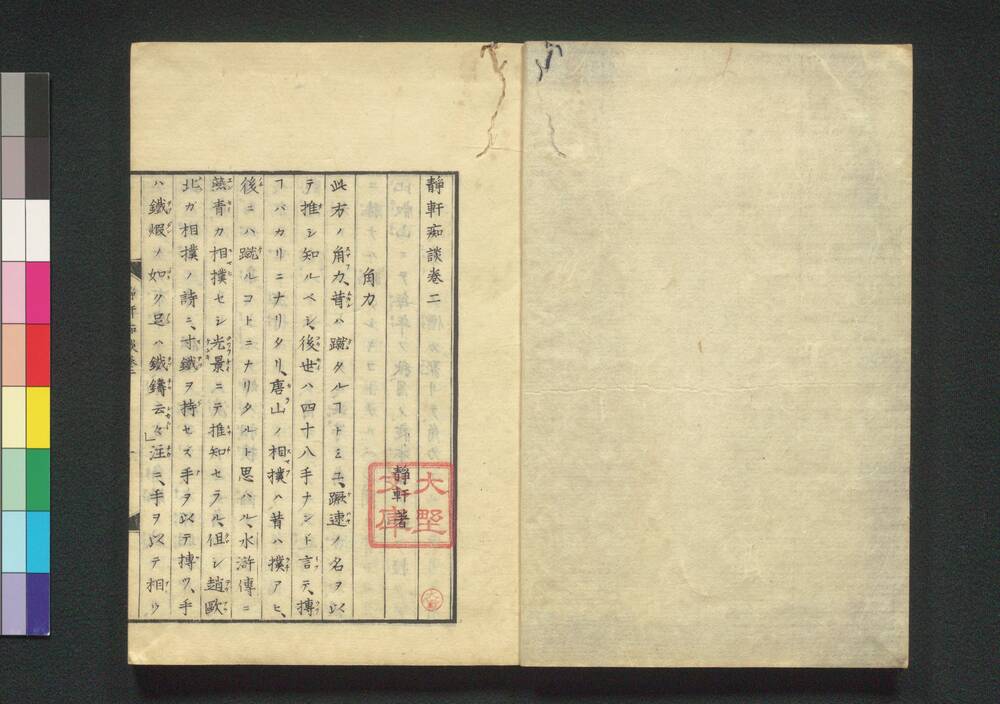 静軒痴談巻二
静軒著
角力
此方ノ角力、昔ハ蹴タルコトミユ、蹶速ノ名ヲ以
テ推シ知ルベシ、後世ハ四十八手ナンド言テ、搏
コバカリニナリタリ、唐山ノ相撲ハ昔ハ撲アヒ、
後ニハ蹴ルコトニナリタルト思ハル、水滸傳ニ
燕青カ相撲セシ光景ニテ推知セラル、但シ趙歐
北ガ相撲ノ詩ニ、寸鐵ヲ持セズ手ヲ以テ搏ツ、手
ハ鐵鍜ノ如ク足ハ鐵鑄云々」注ニ、手ヲ以テ相ウ
大野
文庫